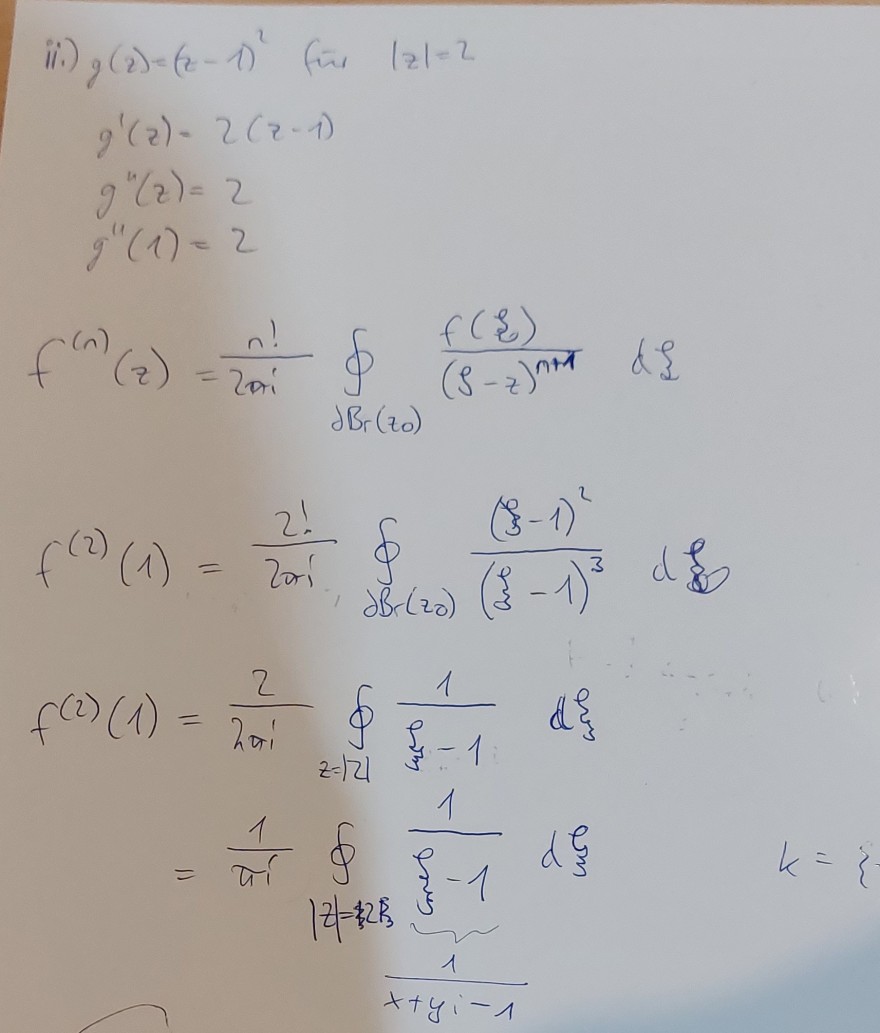 ii.) g(z)=(z-1)² für |z|=2
g'(z)= 2(z-1)
g''(z)= 2
g''(1)= 2
f⁽ⁿ⁾(z) = n!/2πi ∮_{∂Br(z₀)} f(ξ)/(ξ-z)ⁿ⁺¹ dξ
f⁽²⁾(1) = 2!/2πi ∮_{∂Br(z₀)} (ξ-1)²/(ξ-1)³ dξ
f⁽²⁾(1) = 2/2πi ∮_{z=|2|} 1/ξ-1 dξ
= 1/πi ∮_{|z|=2} 1/ξ-1 dξ k = {
1/x+yi-1